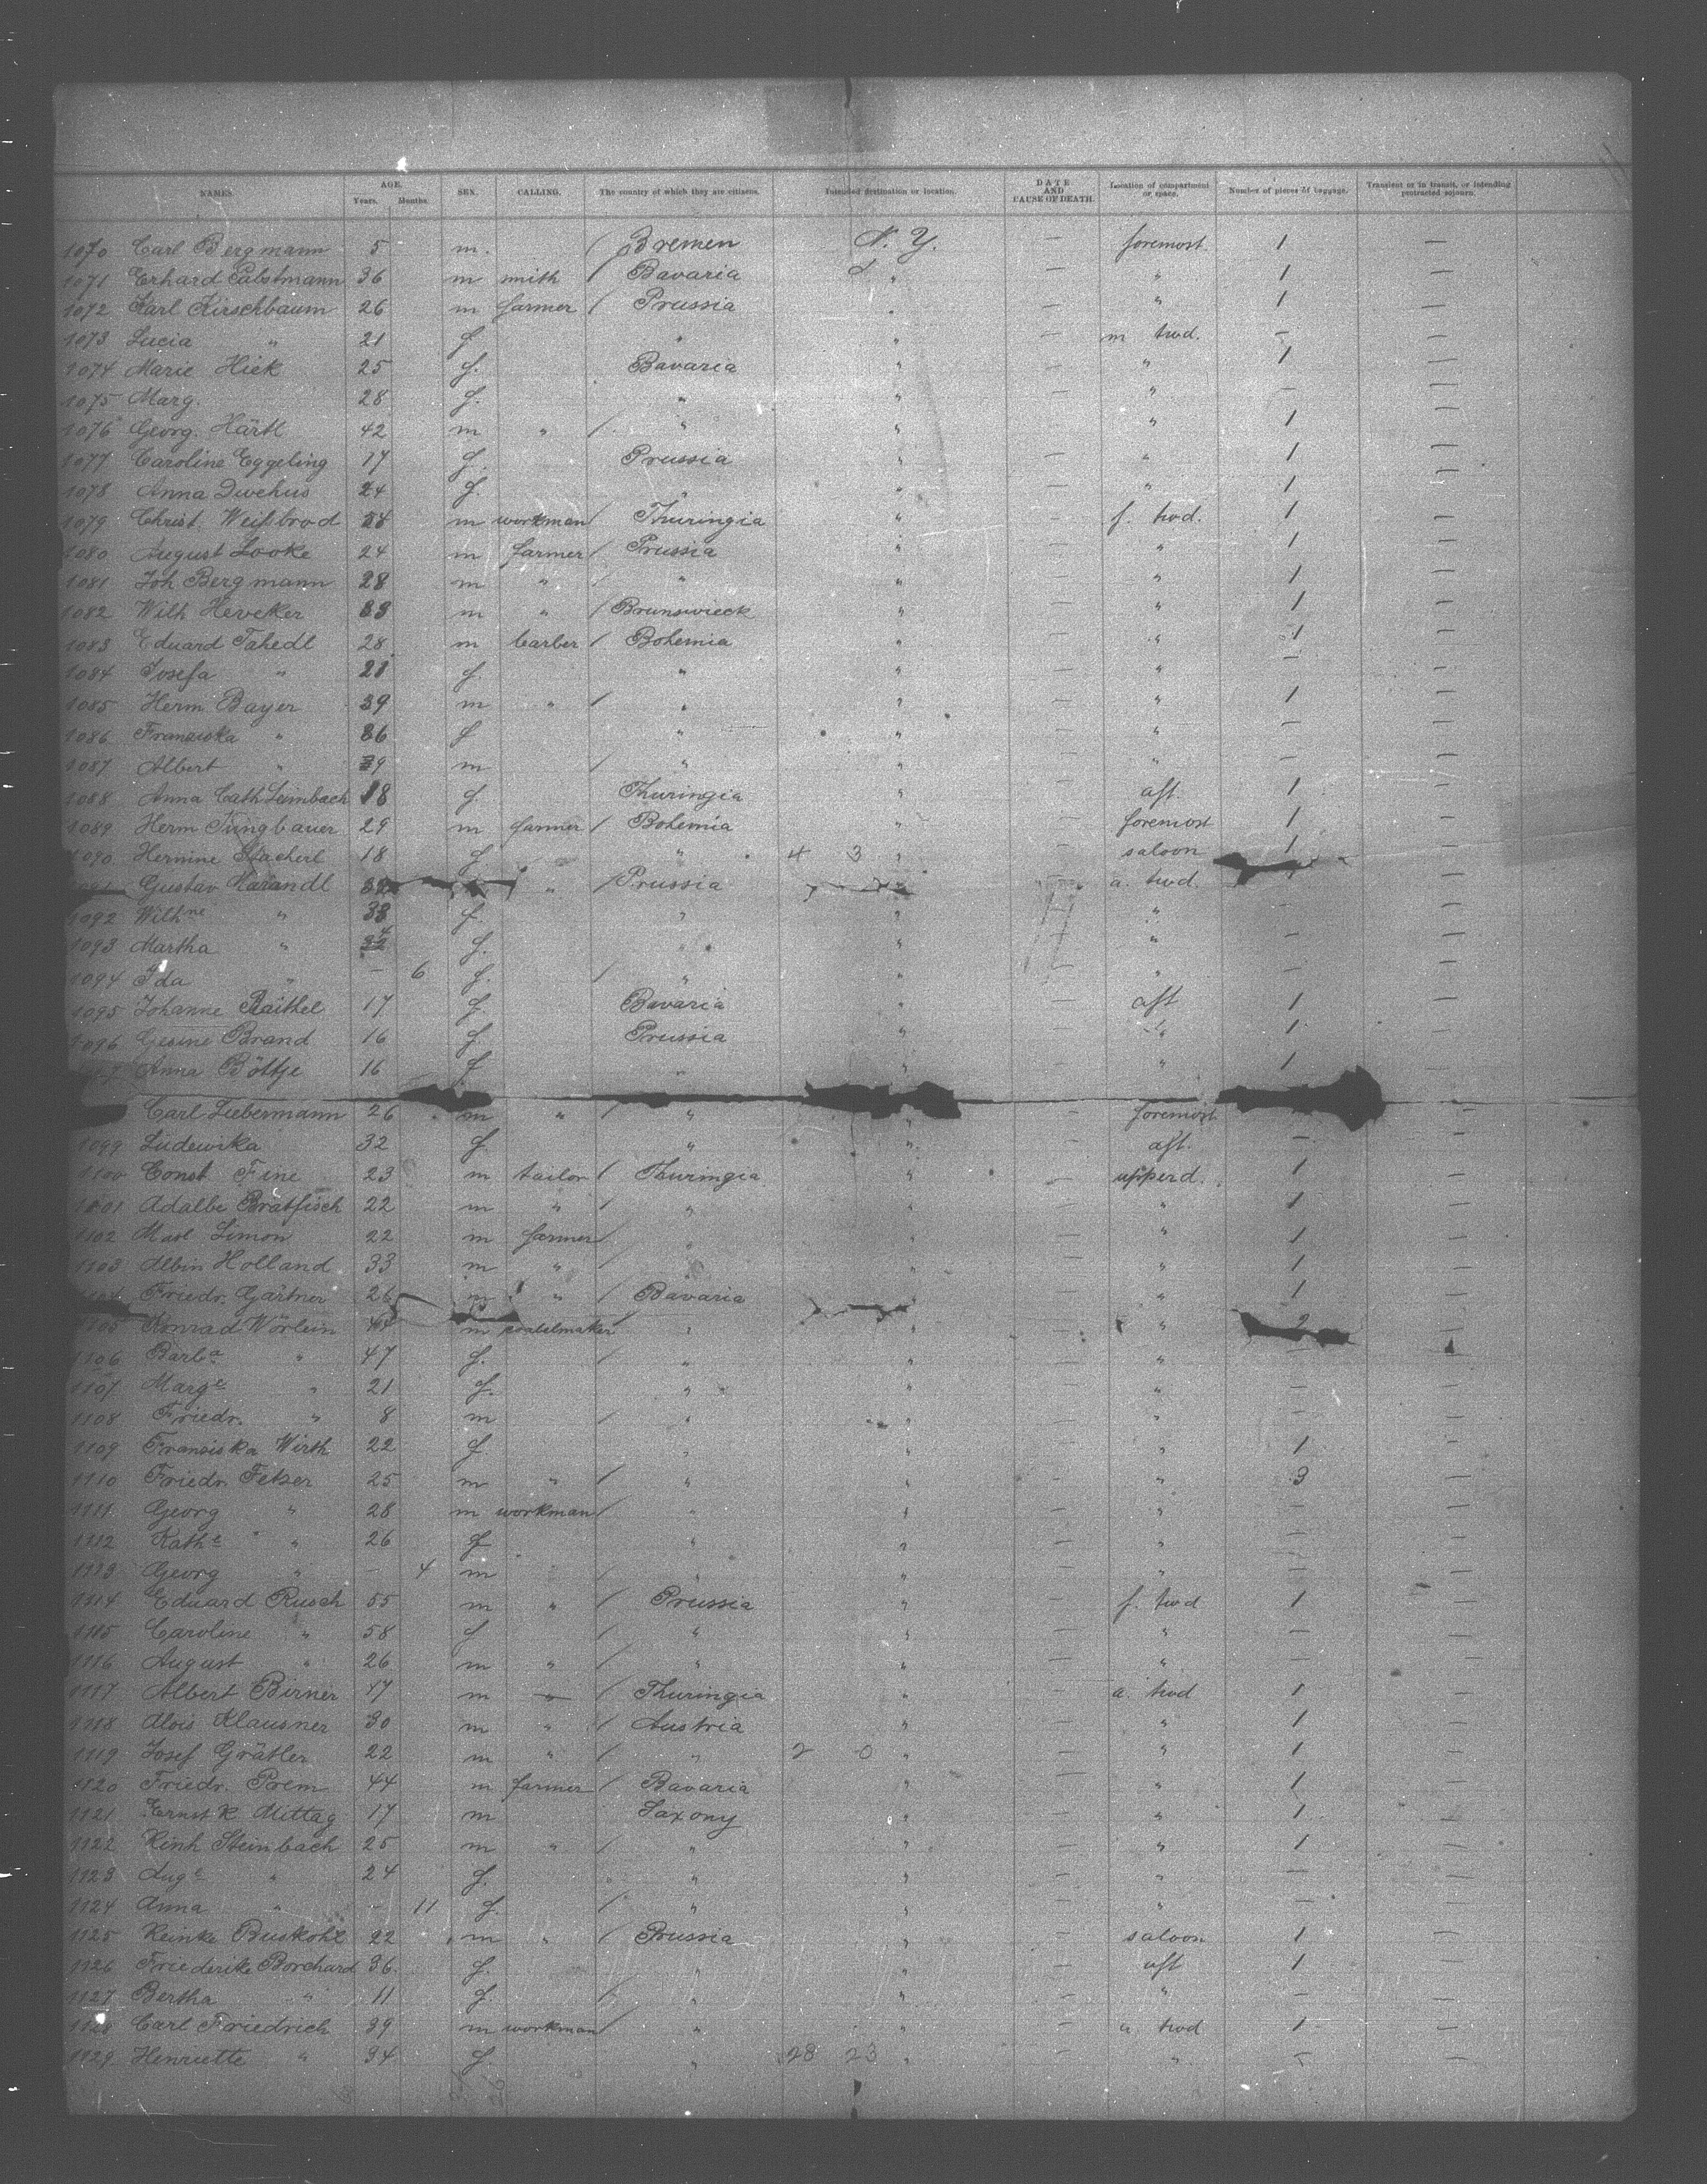 NAMES. AGE. Years. Months. SEX. CALLING. The country of which they are citizens. Intended destination or location. DATE AND CAUSE OF DEATH. Location of compartment or space. Number of pieces of baggage. Transient or in transit, or intending protracted sojourn.
1070 Carl Bergmann 5 m. / Bremen N. Y. — foremost 1 —
1071 Erhard Pabstmann 36 m smith / Bavaria " — " 1 —
1072 Karl Kirschbaum 26 m farmer / Prussia " — " 1 —
1073 Lucia " 21 f. " " — m twd. — —
1074 Marie Hick 25 f. Bavaria " — " 1 —
1075 Marg. 28 f. " " — " — —
1076 Georg. Härtl 42 m " / " " — " 1 —
1077 Caroline Eggeling 17 f. Prussia " — " 1 —
1078 Anna Dwehus 24 f. " " — " 1 —
1079 Christ. Weißbrod m workman / Thuringia " — f. twd. 1 —
1080 August Looke 24 m farmer / Prussia " — " 1 —
1081 Joh Bergmann 28 m " / " " — " 1 —
1082 Wilh Heveker m " / Brunswieck " — " 1 —
1083 Eduard Tahedl 28 m barber / Bohemia " — " 1 —
1084 Josefa " 21 f. " " — " — —
1085 Herm Bayer 39 m " / " " — " 1 —
1086 Franziska " 36 f " " — " — —
1087 Albert " 9 m / " " — " — —
1088 Anna Cath Leimbach 18 f. Thuringia " — aft. 1 —
1089 Herm Jungbauer 29 m farmer / Bohemia " — foremost 1 —
1090 Hermine 18 f. " 4 3 " — saloon 1 —
Gustav " / Prussia " — a. twd. —
1092 Wilhne " 38 f. " " — " — —
1093 Martha " f. " " — " — —
1094 Ida " — 6 f. / " " — " — —
1095 Johanne Raithel 17 f Bavaria " — aft 1 —
1096 Gesine Brand 16 f. Prussia " — " 1 —
Anna Böttje 16 f " " — " 1 —
Carl Liebermann 26 m " / " " — foremost —
1099 Ludewika 32 f " " — aft. — —
1100 Const. Fine 23 m tailor / Thuringia " — upperd. 1 —
1101 Adalbe Bratfisch 22 m " / " " — " 1 —
1102 Simon 22 m farmer / " " — " 1 —
1103 Albin Holland 33 m " / " " — " 1 —
Friedr. Gärtner 26 m " / Bavaria " — " 1 —
1105 Konrad Wörlein m / " " — " 2 —
1106 Barba " 47 f. / " " — " — —
1107 Marge " 21 f. " " — " — —
1108 Friedr. " 8 m / " " — " — —
1109 Franziska Wirth 22 f. " " — " 1 —
1110 Friedr. Fetzer 25 m " / " " — " 3 —
1111 Georg " 28 m workman / " " — " — —
1112 Kathe " 26 f " " — " — —
1113 Georg " — 4 m / " " — " — —
1114 Eduard Rusch 55 m " / Prussia " — f. twd 1 —
1115 Caroline " 58 f / " " — " — —
1116 August " 26 m " / " " — " — —
1117 Albert Birner 17 m " / Thuringia " — a. twd 1 —
1118 Alois Klausner 30 m " / Austria " — " 1 —
1119 Josef Grätler 22 m " / " 2 0 " — " 1 —
1120 Friedr. Prem 44 m farmer / Bavaria " — " 1 —
1121 Ernst K Mittag 17 m Saxony " — " 1 —
1122 Reinh Steinbach 25 m " / " " — " 1 —
1123 Auge " 24 f. " " — " — —
1124 Anna " — 11 f. / " " — " — —
1125 Reinke Buskohl 22 m " / Prussia " — saloon 1 —
1126 Friederike Borchard 36 f. " " — aft 1 —
1127 Bertha " 11 f. / " " — " — —
1128 Carl Friedrich 39 m workman / " " — a twd 1 —
1129 Henriette " 34 f. " 28 23 " — " — —